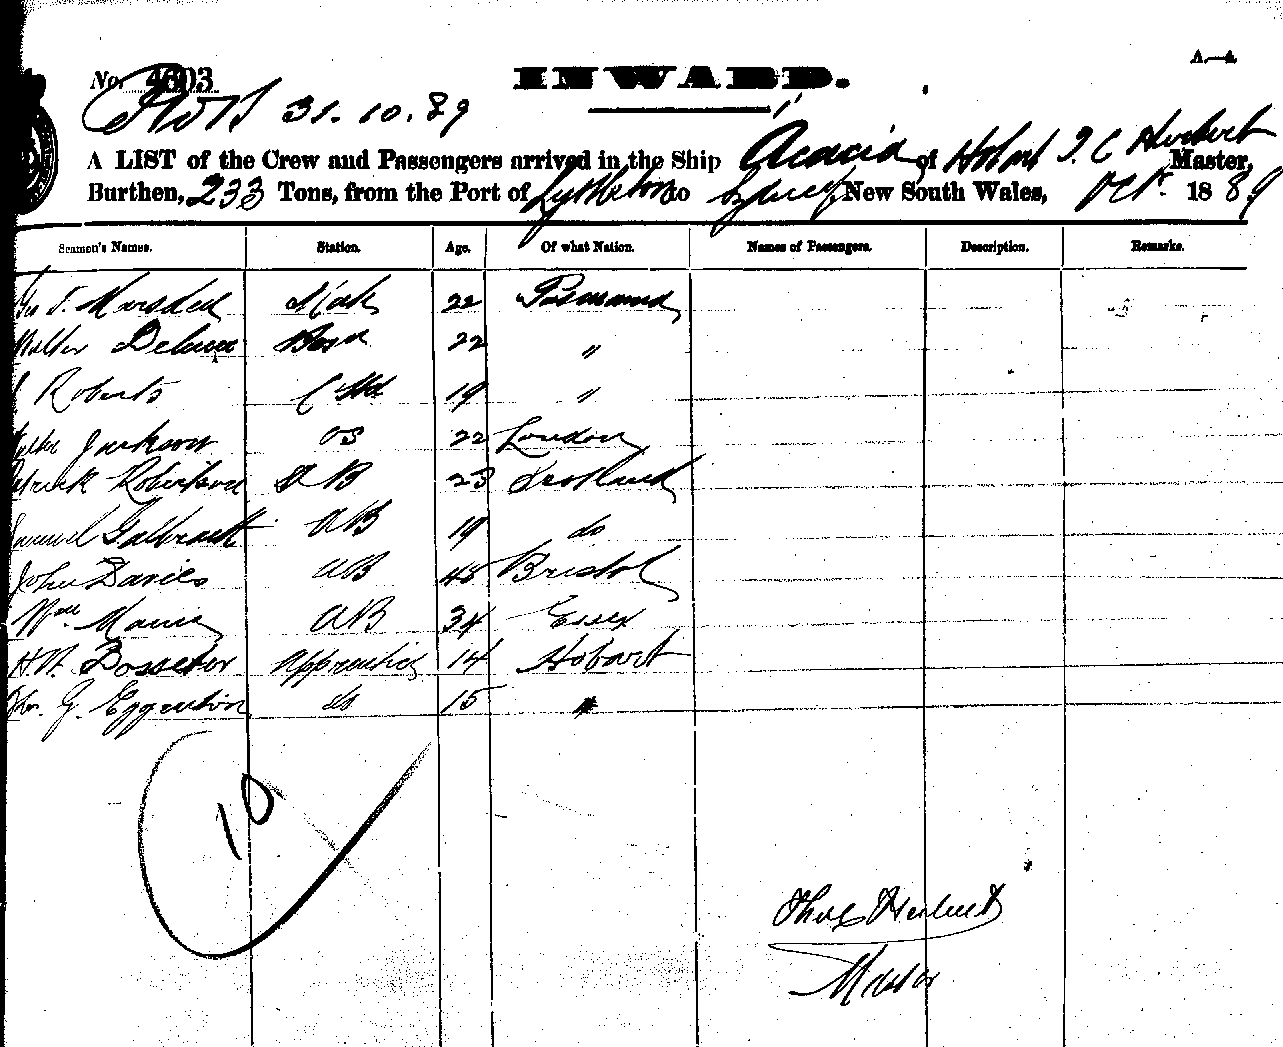 A.—4.
No. 4603 INWARD.
31.10.89
A LIST of the Crew and Passengers arrived in the Ship Acacia of Hobart T. C Herbert Master,
Burthen, 233 Tons, from the Port of Lyttelton to Sydney New South Wales, Octr 1889
Seamen's Names. Station. Age. Of what Nation. Names of Passengers. Description. Remarks.
Geo T. Marsden Mate 22 Tasmania
Walter 22 "
Roberts 19 "
Jackson OS 22 London
Patrick Robertson AB 23 Scotland
Samuel Galbraith AB 19 do
John Davies AB 45 Bristol
Wm AB 34 Essex
H.W. Bossetor Apprentice 14 Hobart
Thos. G. Eggerton do 15 "
10
Thos C Herbert
Master